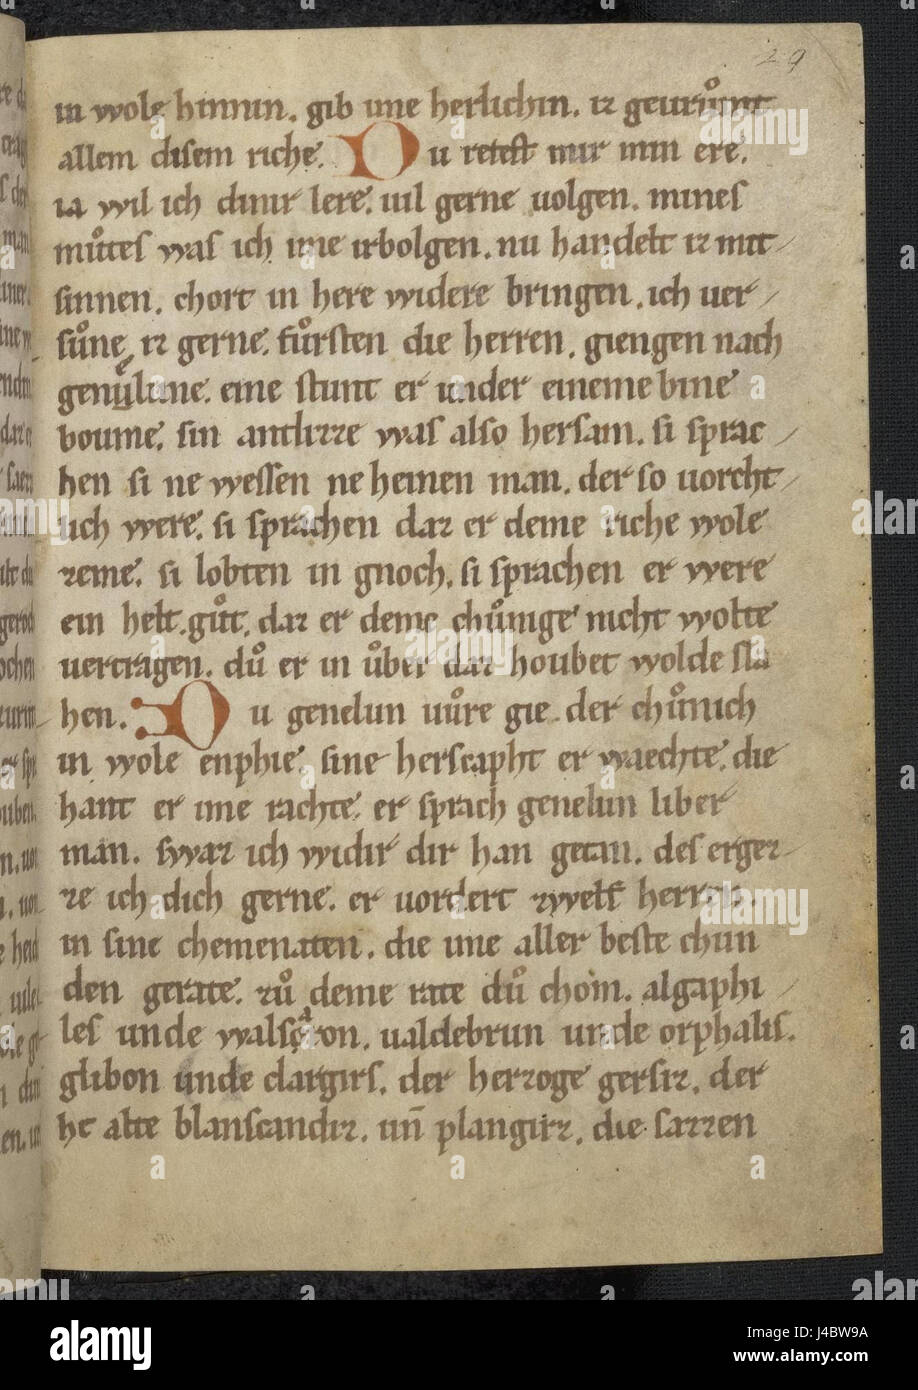 29
in wole hinnin. gib ime herlichin. iz geurůmt
allem disem riche. Du retest mir min ere.
ia wil ich diner lere. uil gerne uolgen. mines
můtes was ich ime irbolgen. nu handelt iz mit
sinnen. chort in here widere bringen. ich uer
sůne iz gerne. fůrsten die herren. giengen nach
genelune. eine stunt er under eineme bine
boume. sin antlizze was also hersam. si sprac
hen si ne wessen neheinen man. der so uorcht
lich were. si sprachen daz er deme riche wole
zeme. si lobten in gnoch. si sprachen er were
ein helt. gůt. daz er deme chůnige nicht wolte
uertragen. dů er in ůber daz houbet wolde sla
hen. Du genelun uůre gie. der chůnich
in wole enphie. sine herscapht er waechte. die
hant er ime rachte. er sprach genelun liber
man. swaz ich widir dir han getan. des ergez
ze ich dich gerne. er uordert zwelf herren.
in sine chemenaten. die ime aller beste chun
den gerate. zů deme rate dů chom. algaphi
les unde walsaron. ualdebrun unde orphalis.
glibon unde clargirs. der herzoge gersiz. der
ht alte blanscandiz. uñ plangirz. die sarzen
alamy
Image ID: J4BW9A
www.alamy.com